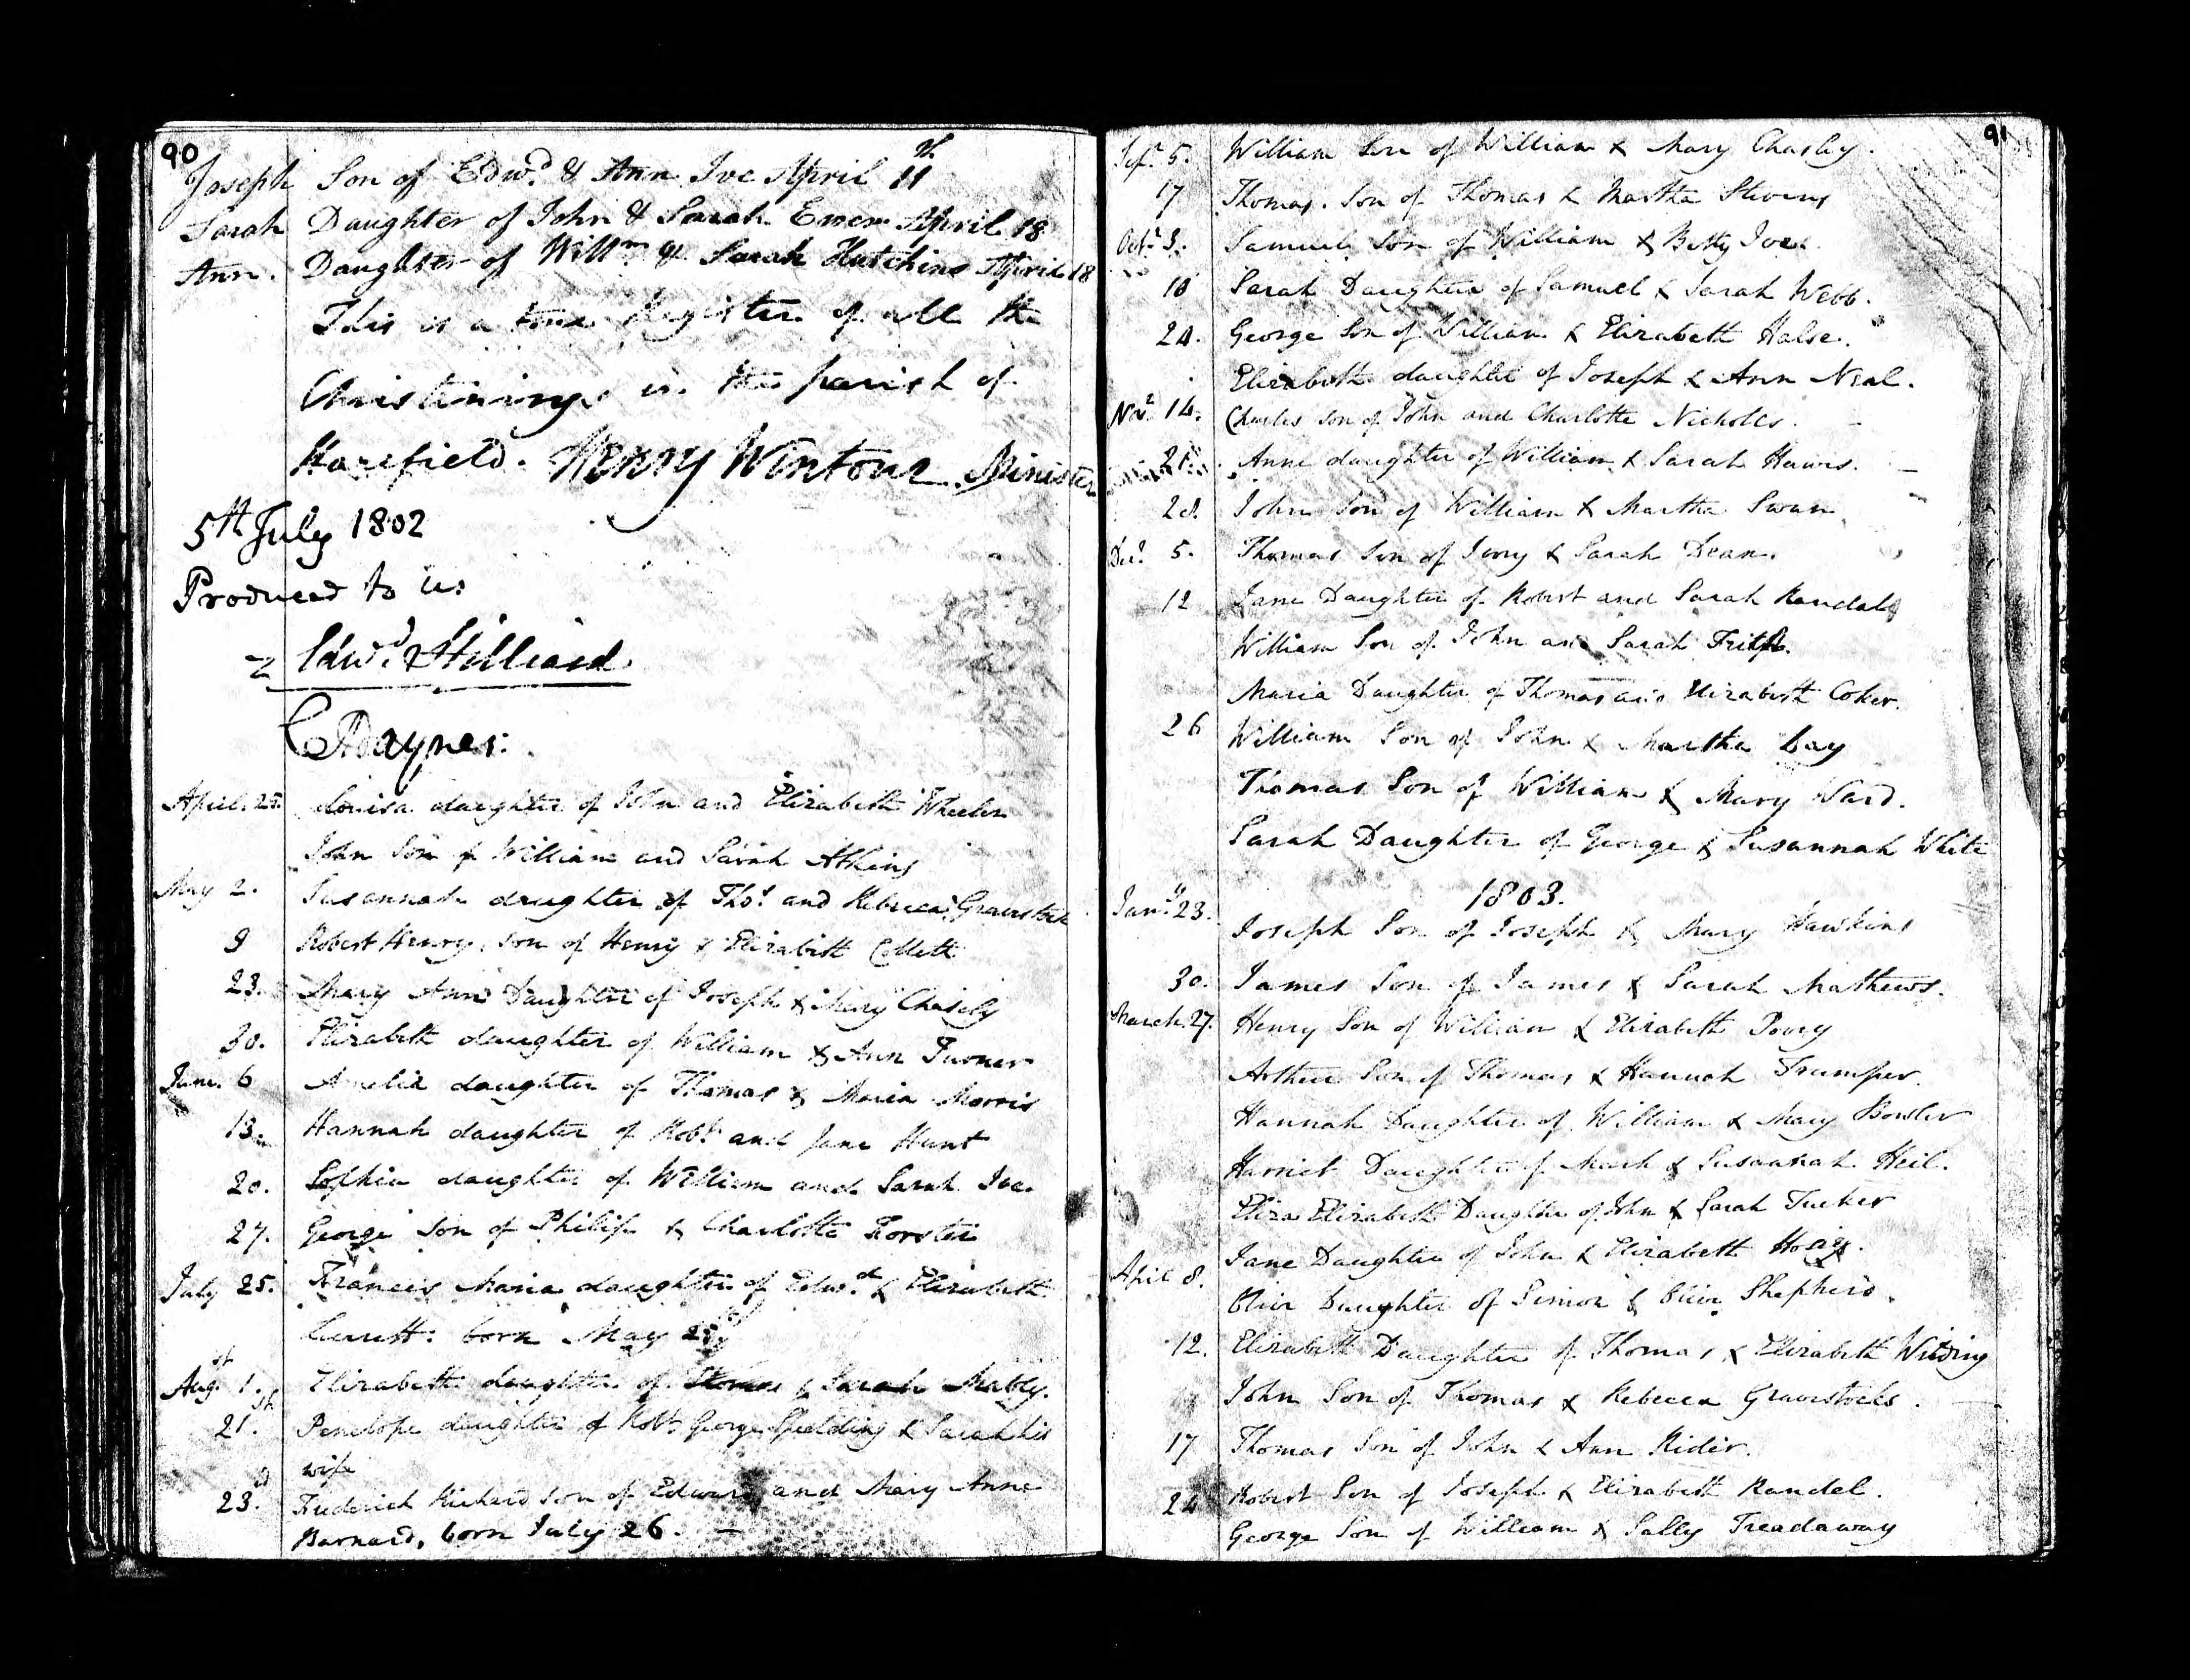 90
Joseph Son of Edwd. & Ann Ive April 11
Sarah Daughter of John & Sarah Emer April 18
Ann. Daughter of Willm & Sarah Hutchins April 18
This is a true Register of all the
Christenings in the parish of
Harefield. Henry Wintour Minister
5th July 1802
Produced to us
Edwd Hilliard
April 25. Louisa daughter of John and Elizabeth Wheeler
John Son of William and Sarah Atkins
May 2. Susannah daughter of Thos. and Rebecca Graverstock
9 Robert Henry, son of Henry & Elizabeth Collett
23. Mary Ann Daughter of Joseph & Mary Chasely
30. Elizabeth daughter of William & Ann Turner
June. 6 Amelia daughter of Thomas & Maria Morris
13. Hannah daughter of Robt and Jane Hunt
20. Sophia daughter of William and Sarah Ive.
27. George Son of Philip & Charlotte Forster
July 25. Francis Maria daughter of Edwd. & Elizabeth
born May
Aug. 1.st Elizabeth daughter of Thomas & Sarah Mably.
21.st Penelope daughter of Robt. George Spelding & Sarah his
wife
23.d Frederick Richard son of Edward and Mary Anne
Barnard, born July 26. —
91
Sepr. 5. William Son of William & Mary Chasley.
17 Thomas. Son of Thomas & Martha Stevens
Octr. 3. Samuel Son of William & Betty Ives.
10 Sarah Daughter of Samuel & Sarah Webb.
24. George Son of William & Elizabeth Halse.
Elizabeth daughter of Joseph & Ann Neal.
Novr. 14. Charles son of John and Charlotte Nicholls.
21. Anne daughter of William & Sarah Hawes.
28. John Son of William & Martha Swan
Decr. 5. Thomas Son of Ivory & Sarah Dean.
12 Jane Daughter of Robert and Sarah Randall
William Son of John and Sarah
Maria Daughter of Thomas and Elizabeth Coker.
26 William Son of John & Martha Gay
Thomas Son of William & Mary Ward.
Sarah Daughter of George & Susannah White
1803.
Jany. 23. Joseph Son of Joseph & Mary Hawkins
30. James Son of James & Sarah Mathews.
March. 27. Henry Son of William & Elizabeth Povey
Arthur Son of Thomas & Hannah Trumper.
Hannah Daughter of William & Mary Bowler
Harriet Daughter of Mark & Susannah Heil.
Eliza Elizabeth Daughter of John & Sarah Tucker
Jane Daughter of John & Elizabeth
April 8. Olive Daughter of Simon & Olive Shepherd.
12. Elizabeth Daughter of Thomas & Elizabeth Wilding
John Son of Thomas & Rebecca Graverstocks.
17 Thomas Son of John & Ann Rider.
24 Robert Son of Joseph & Elizabeth Randel.
George Son of William & Sally Treadaway